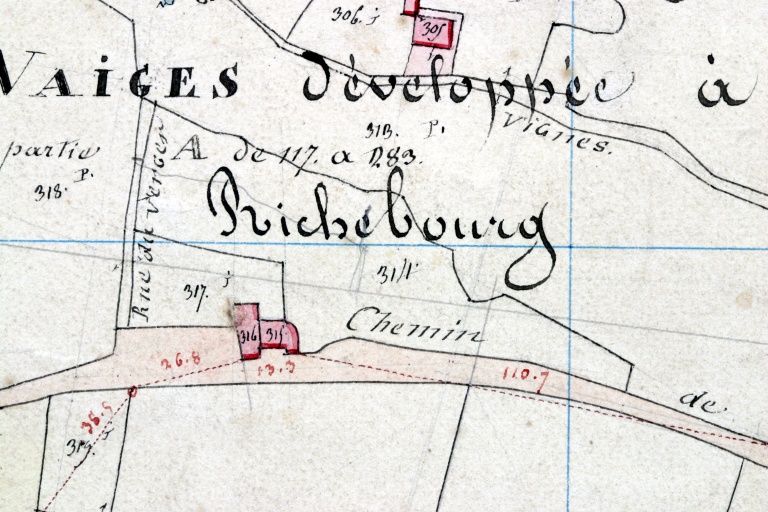 306. j
305
j
VAIGES développée à
313. P.
Vignes.
partie
P.
318.
A de 117. a 1283.
Rue du Verger
Richebourg
314
317. j
316 315
Chemin
26.8
13.3
110.7
de
38.5
319. j